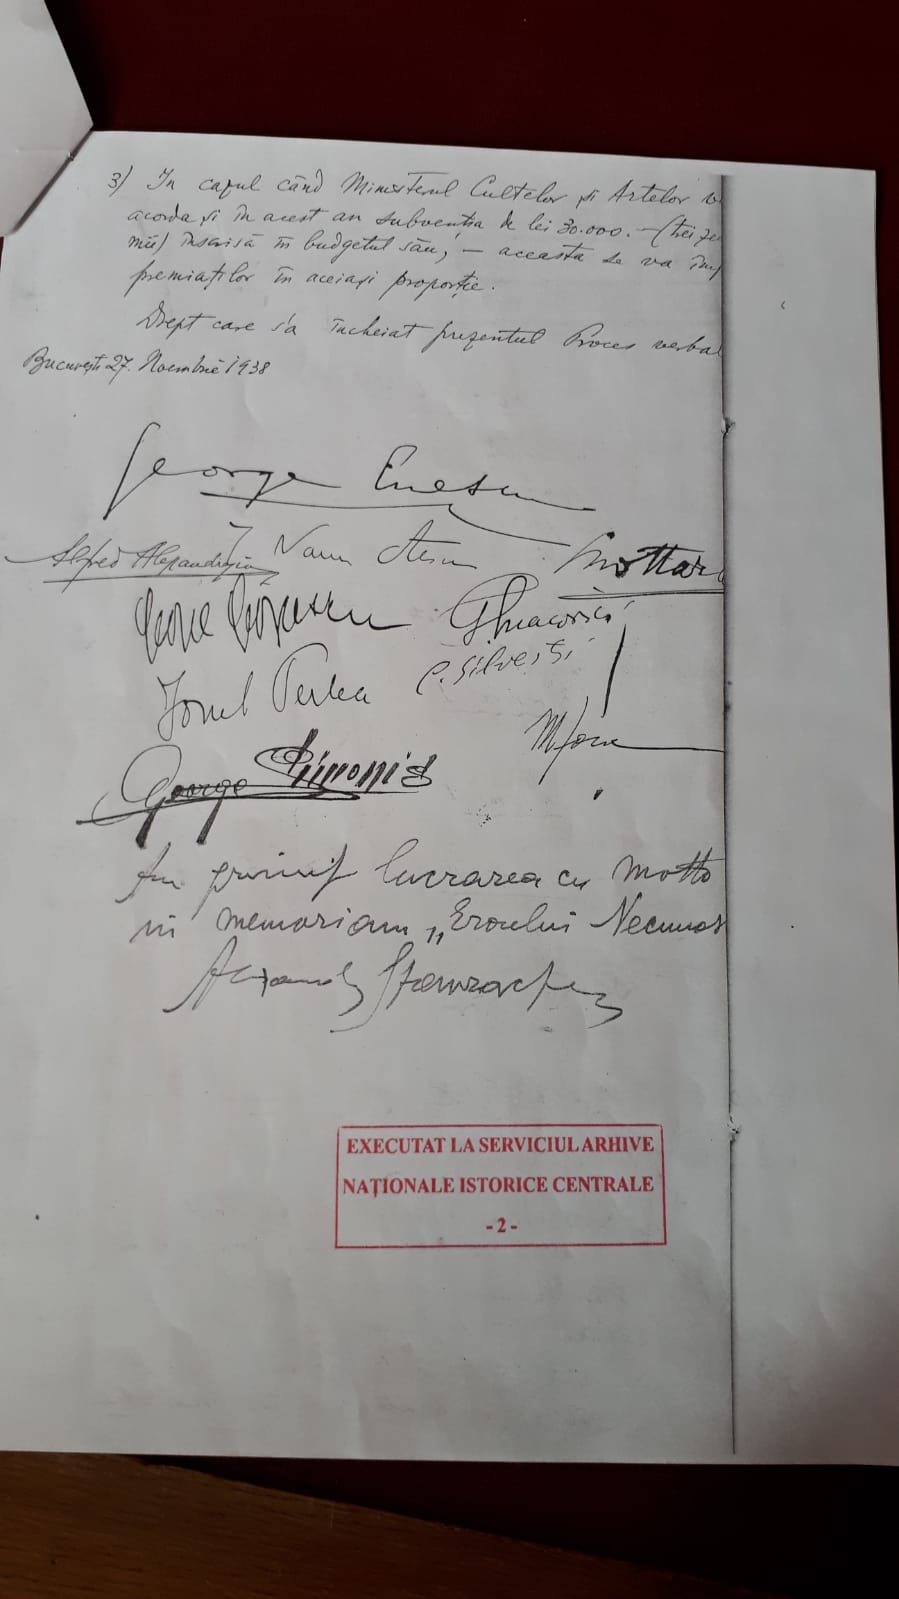 3) In cazul când Ministerul Cultelor și Artelor v
acorda și în acest an subvenția de lei 30.000.- (trei ze
mii) înscrisă în budgetul său, – aceasta se va îm
premiaților în aceiași proporție.
Drept care s'a încheiat prezentul Proces verbal
București 27. Noembrie 1938
George Enescu
Alfred Alessandrescu
Mottar
Ionel Perlea
C. Silvestri
George Simonis
Am primit lucrarea cu motto
in memoriam „Eroului Necunos
EXECUTAT LA SERVICIUL ARHIVE
NAȚIONALE ISTORICE CENTRALE
- 2 -